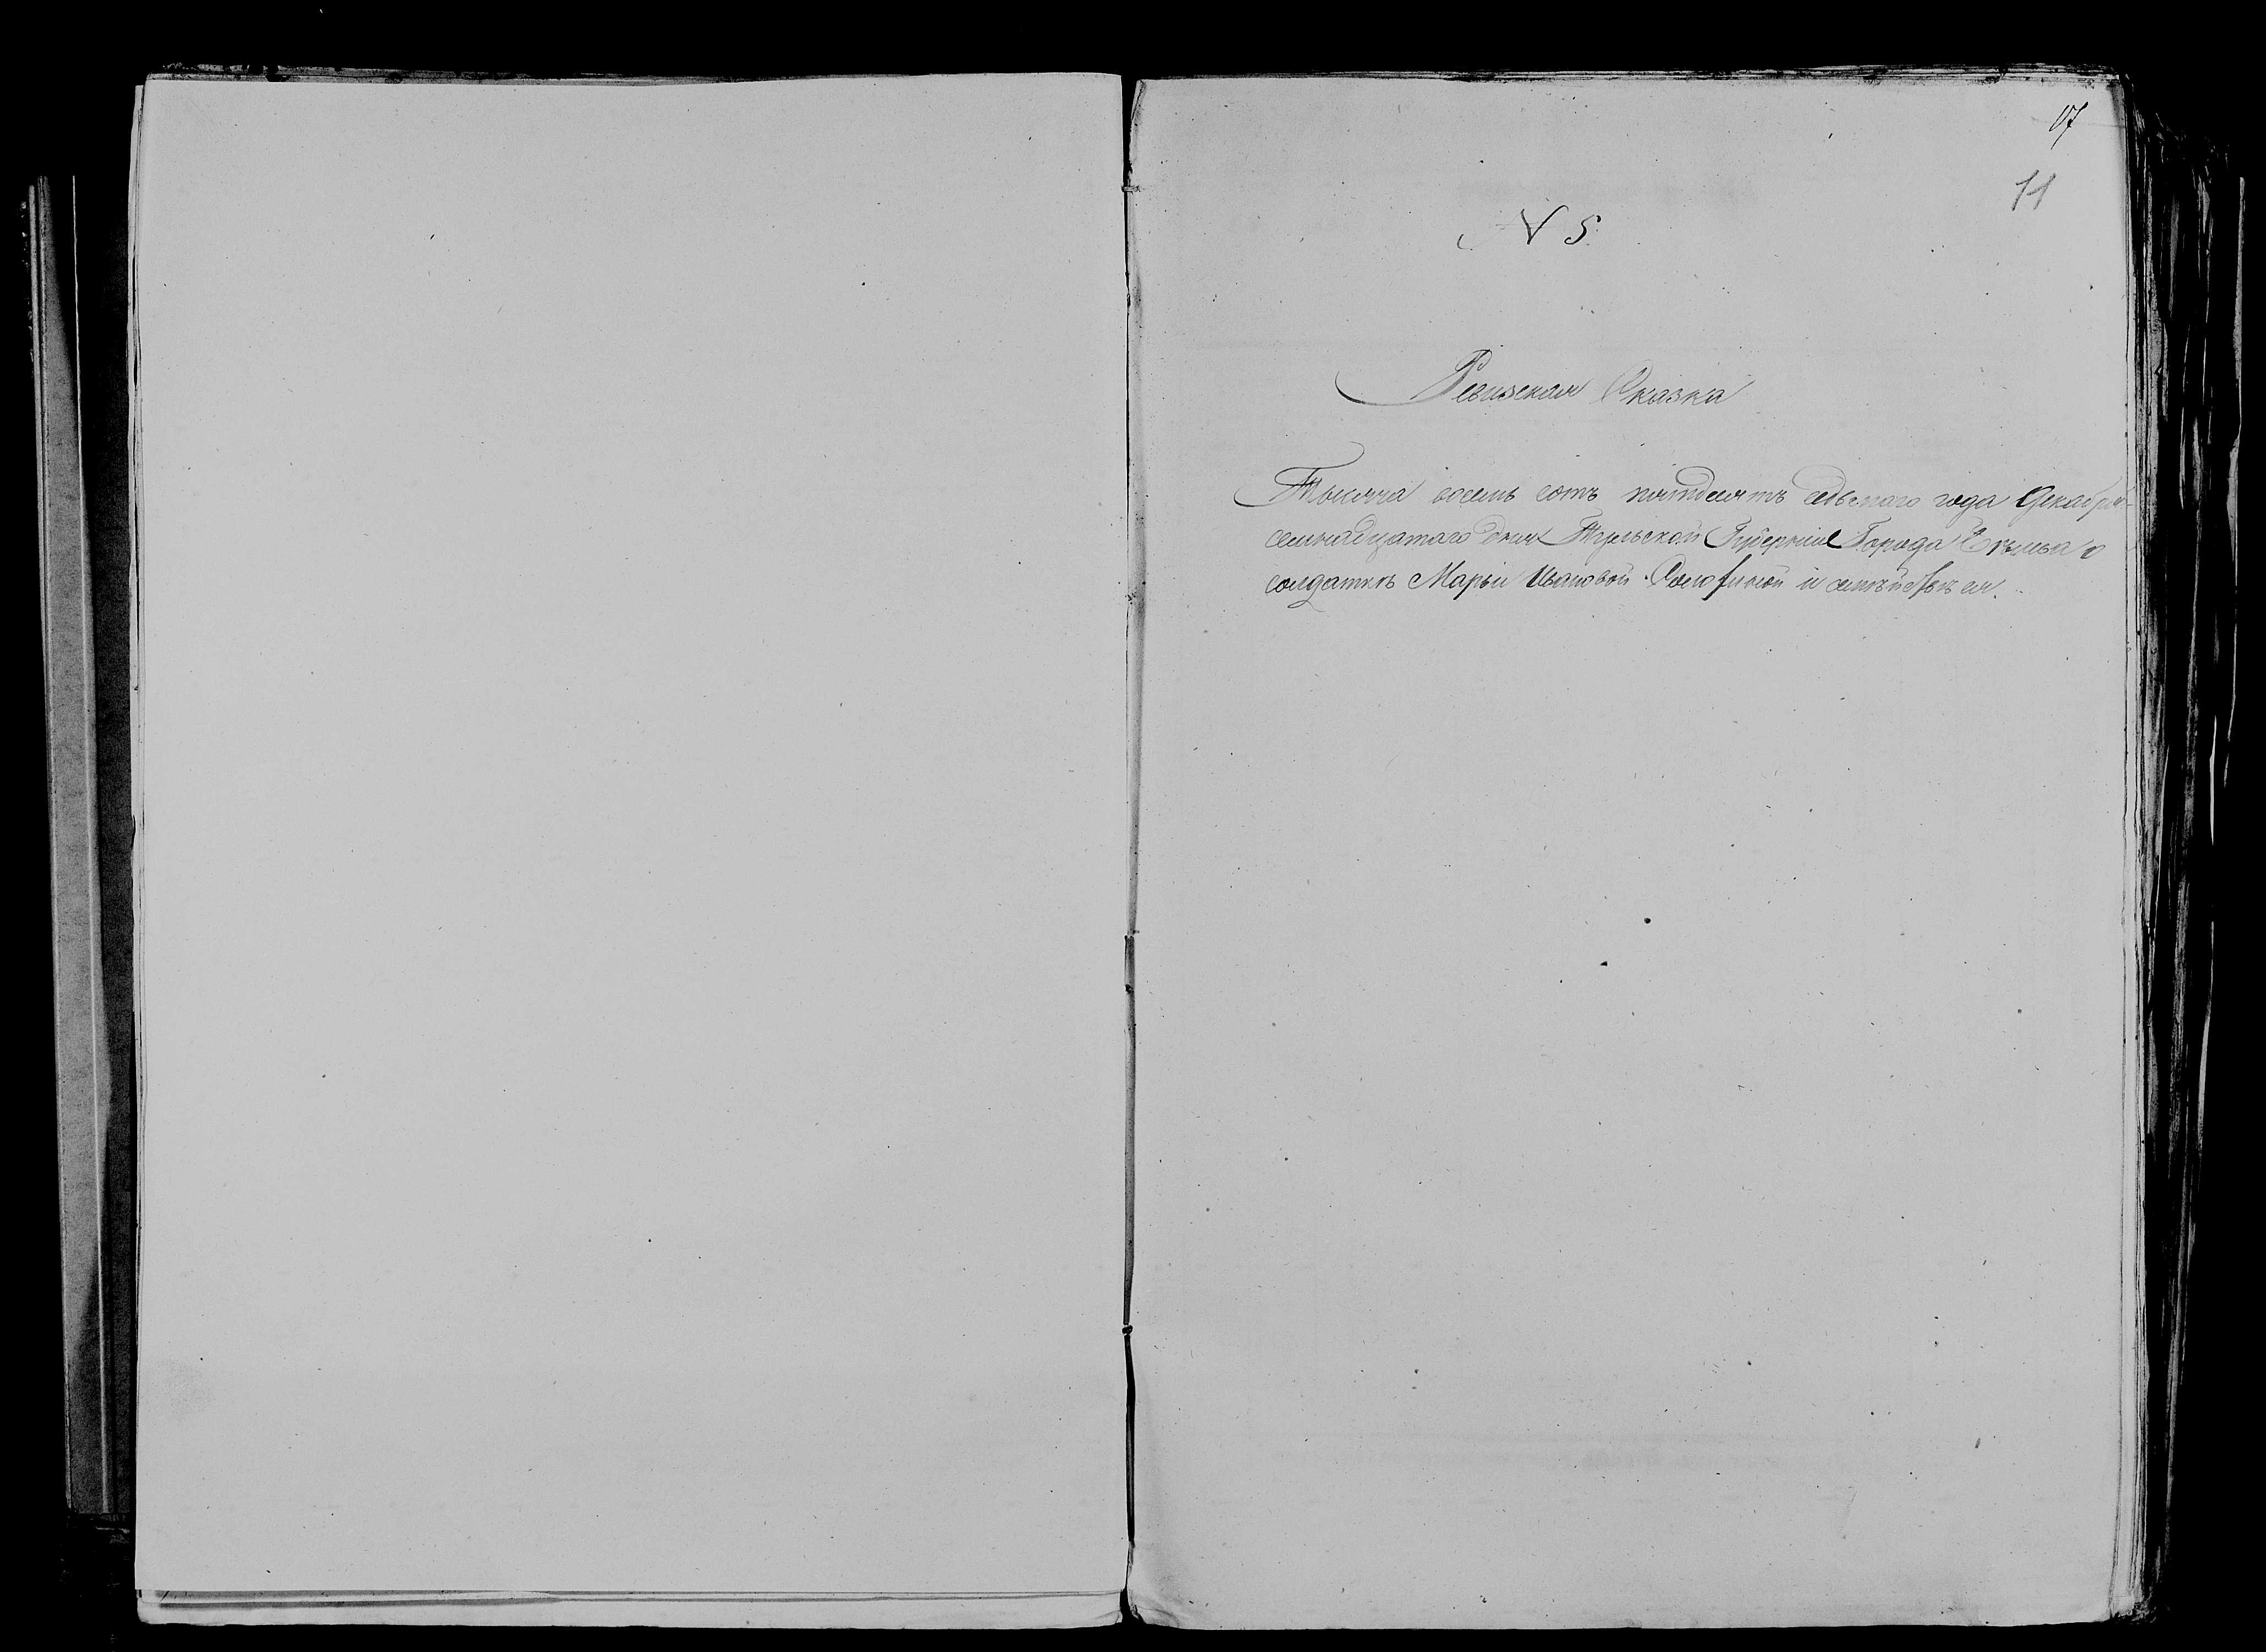 17
11
N 5.
Ревизская Сказка
Тысяча восемь сотъ пятдесятъ седьмаго года Декабря
семнадцатаго дня Тульской Губерніи Города о
солдаткѣ Марьи Ивановой и семѣйствѣ ея.